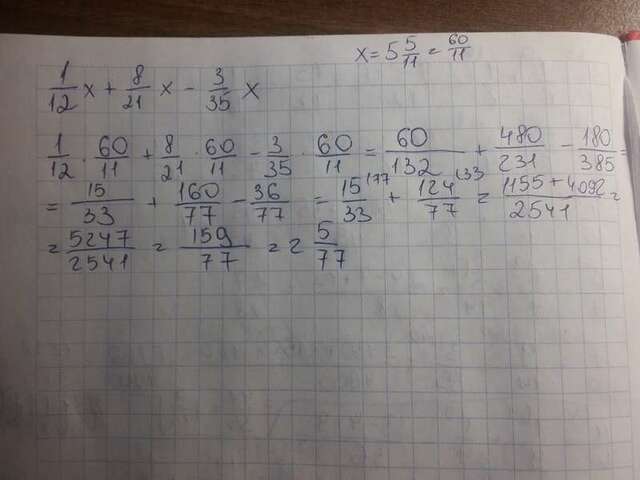 x = 5 5/11 = 60/11
1/12 x + 8/21 x - 3/35 x
1/12 · 60/11 + 8/21 · 60/11 - 3/35 · 60/11 = 60/132 + 480/231 - 180/385 =
= 15/33 + 160/77 - 36/77 = 15/33 \77 + 124/77 \33 = 1155 + 4092/2541 =
= 5247/2541 = 159/77 = 2 5/77